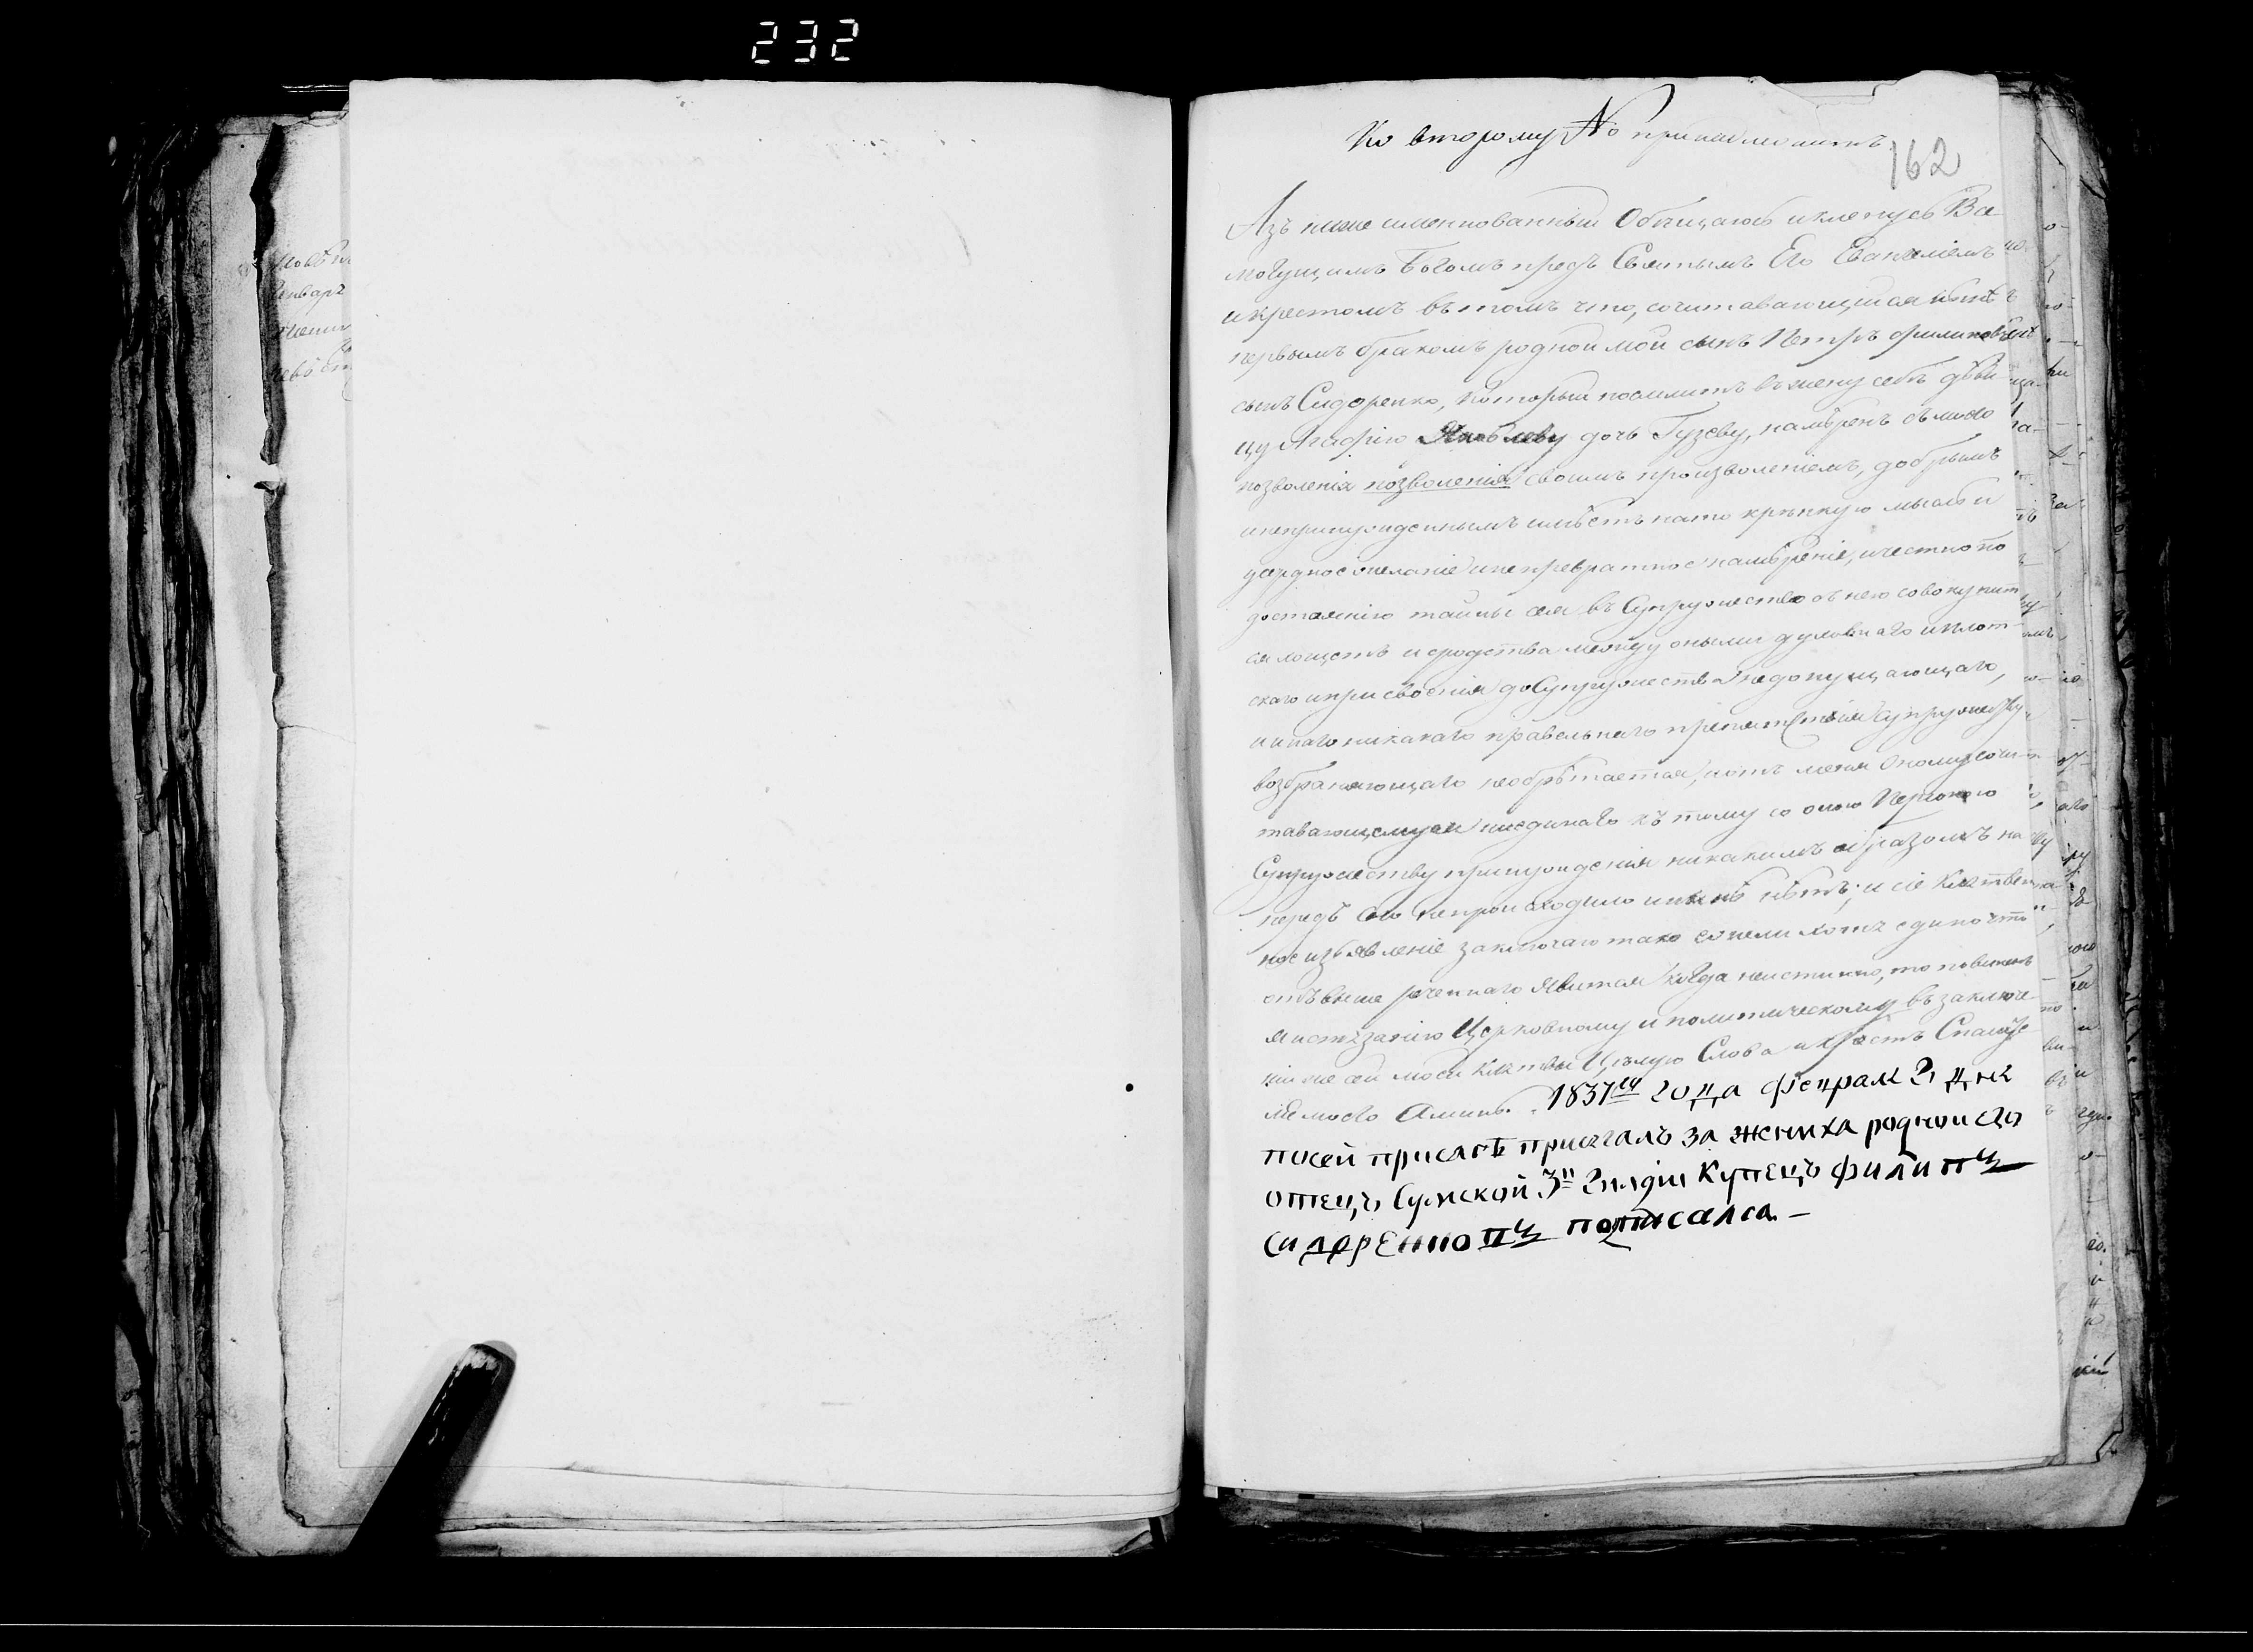 232
Ко второму № принадлежитъ
162
Азъ ниже имеенованный Обѣщаюсь и кленусь Все
могущимъ Богомъ предъ Святымъ Его Евангелiемъ
и крестомъ въ томъ что, сочитавающiйся
первымъ бракомъ родной мой сынъ Петръ филиповъ
сынъ Сидоренко, который поемлитъ въ жену себѣ дѣви
цу Агафiю Яковлеву дочь Гузеву, намѣренъ съ моего
позволенiя позволенiя своимъ произволенiемъ, добрымъ
и непринужденнымъ имѣетъ на то крѣпкую мысль и
усердное желанiе и непревратное намѣренiе, и честно по
достоянiю тайны сея въ Супружество съ нею совокупит
ся хощетъ и сродства между оными духовнаго и плот
скаго и присвоенiя до Супружества недопущающаго,
и инаго никакаго правельнаго препятствiя супружеству
возбраняющаго необрѣтается, и отъ меня оному сочи
тавающемуся ниединаго къ тому со оною Персоною
Супружеству принужденiя никакимъ образомъ на
передъ сего непроисходило и ннѣ нѣтъ; и сiе Клятвен
ное изъявленiе заключаю тако ежели хотя едино что
отъ выше реченнаго явится когда неистинно, то повиненъ
я истязанiю Церковному и политическому, въ заключе
нiи же сей моей клятвы Цѣлую Слова и Крестъ Спасите
ля моего Аминь. 1837го года феврал 2 дня
посей присягѣ присягалъ за жениха родной его
отецъ Сумской 3й гилдiи Купецъ филипъ
Сидоренковъ подписалса —